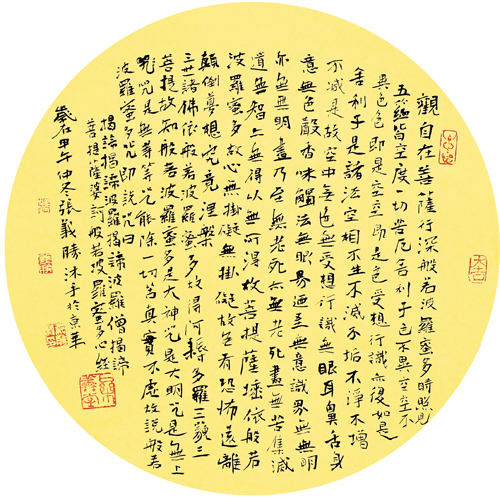 觀自在菩薩行深般若波羅蜜多時照見
五蘊皆空度一切苦厄舍利子色不異空空不
異色色即是空空即是色受想行識亦復如是
舍利子是諸法空相不生不滅不垢不淨不增
不減是故空中無色無受想行識無眼耳鼻舌身
意無色聲香味觸法無眼界乃至無意識界無無明
亦無無明盡乃至無老死亦無老死盡無苦集滅
道無智亦無得以無所得故菩提薩埵依般若
波羅蜜多故心無掛礙無掛礙故無有恐怖遠離
顛倒夢想究竟涅槃
三世諸佛依般若波羅蜜多故得阿耨多羅三藐三
菩提故知般若波羅蜜多是大神咒是大明咒是無上
咒是無等等咒能除一切苦真實不虛故說般若
波羅蜜多咒即說咒曰
揭諦揭諦波羅揭諦波羅僧揭諦
菩提薩婆訶般若波羅蜜多心經
歲在甲午仲冬張義勝沐手於京華